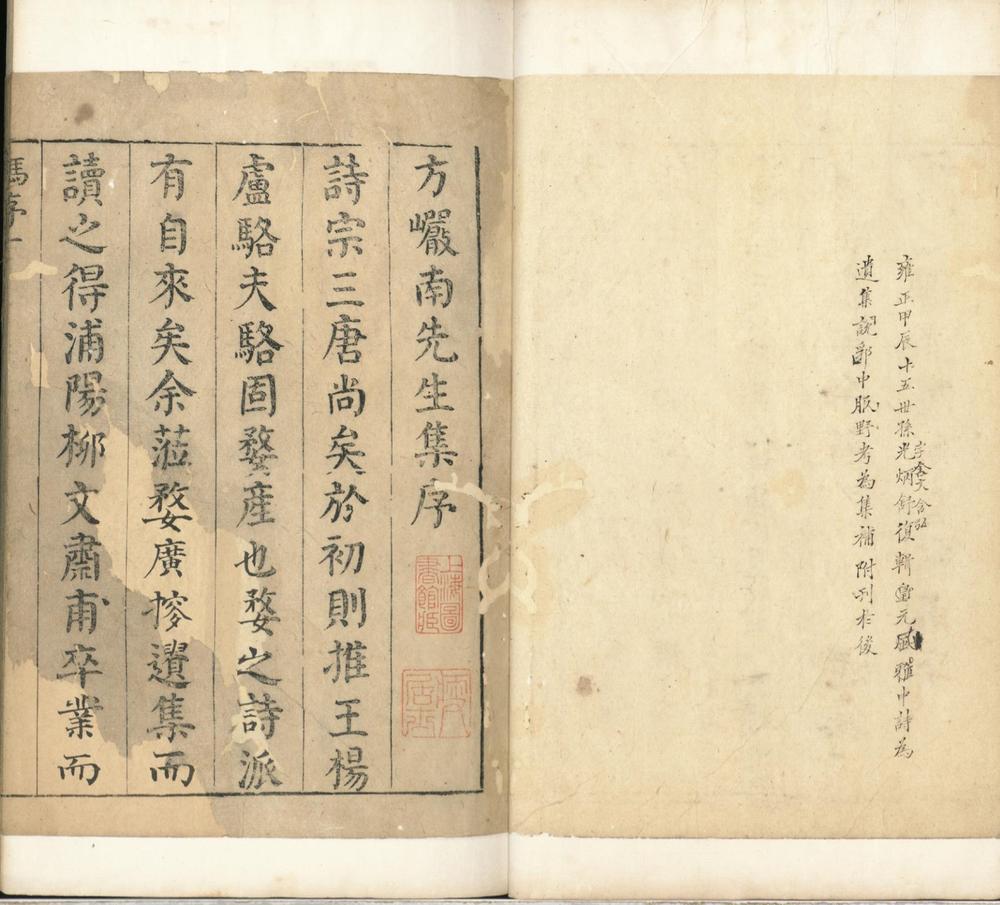 雍正甲辰十五世孫光炳舒復輯元風雅中詩為
遺集說郛中臥野考為集補附刊於後
方巗南先生集序
詩宗三唐尚矣於初則推王楊
盧駱夫駱固婺產也婺之詩派
有自來矣余蒞婺廣搜遺集而
讀之得浦陽柳文肅甫卒業而
馮序一
上海圖書館藏